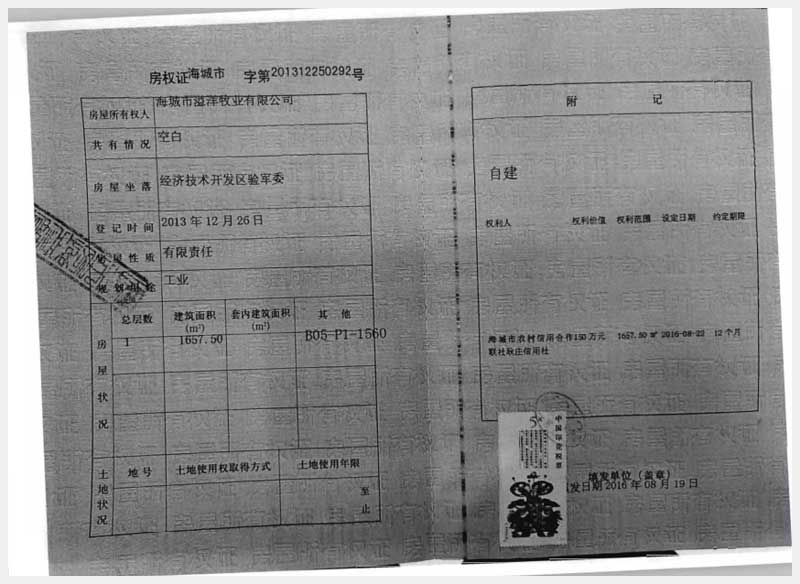 房权证海城市 字第201312250292号
房屋所有权人 海城市溢洋牧业有限公司
共有情况 空白
房屋坐落 经济技术开发区验军委
登记时间 2013年12月26日
房屋性质 有限责任
规划用途 工业
房屋状况 总层数 建筑面积(m²) 套内建筑面积(m²) 其他
1 1657.50 B05-P1-1560
土地状况 地号 土地使用权取得方式 土地使用年限
至
止
附 记
自建
权利人 权利价值 权利范围 设定日期 约定期限
海城市农村信用合作 150万元 1657.50㎡ 2016-08-22 12个月
联社耿庄信用社
中国印花税票
填发单位（盖章）
发日期 2016年08月19日